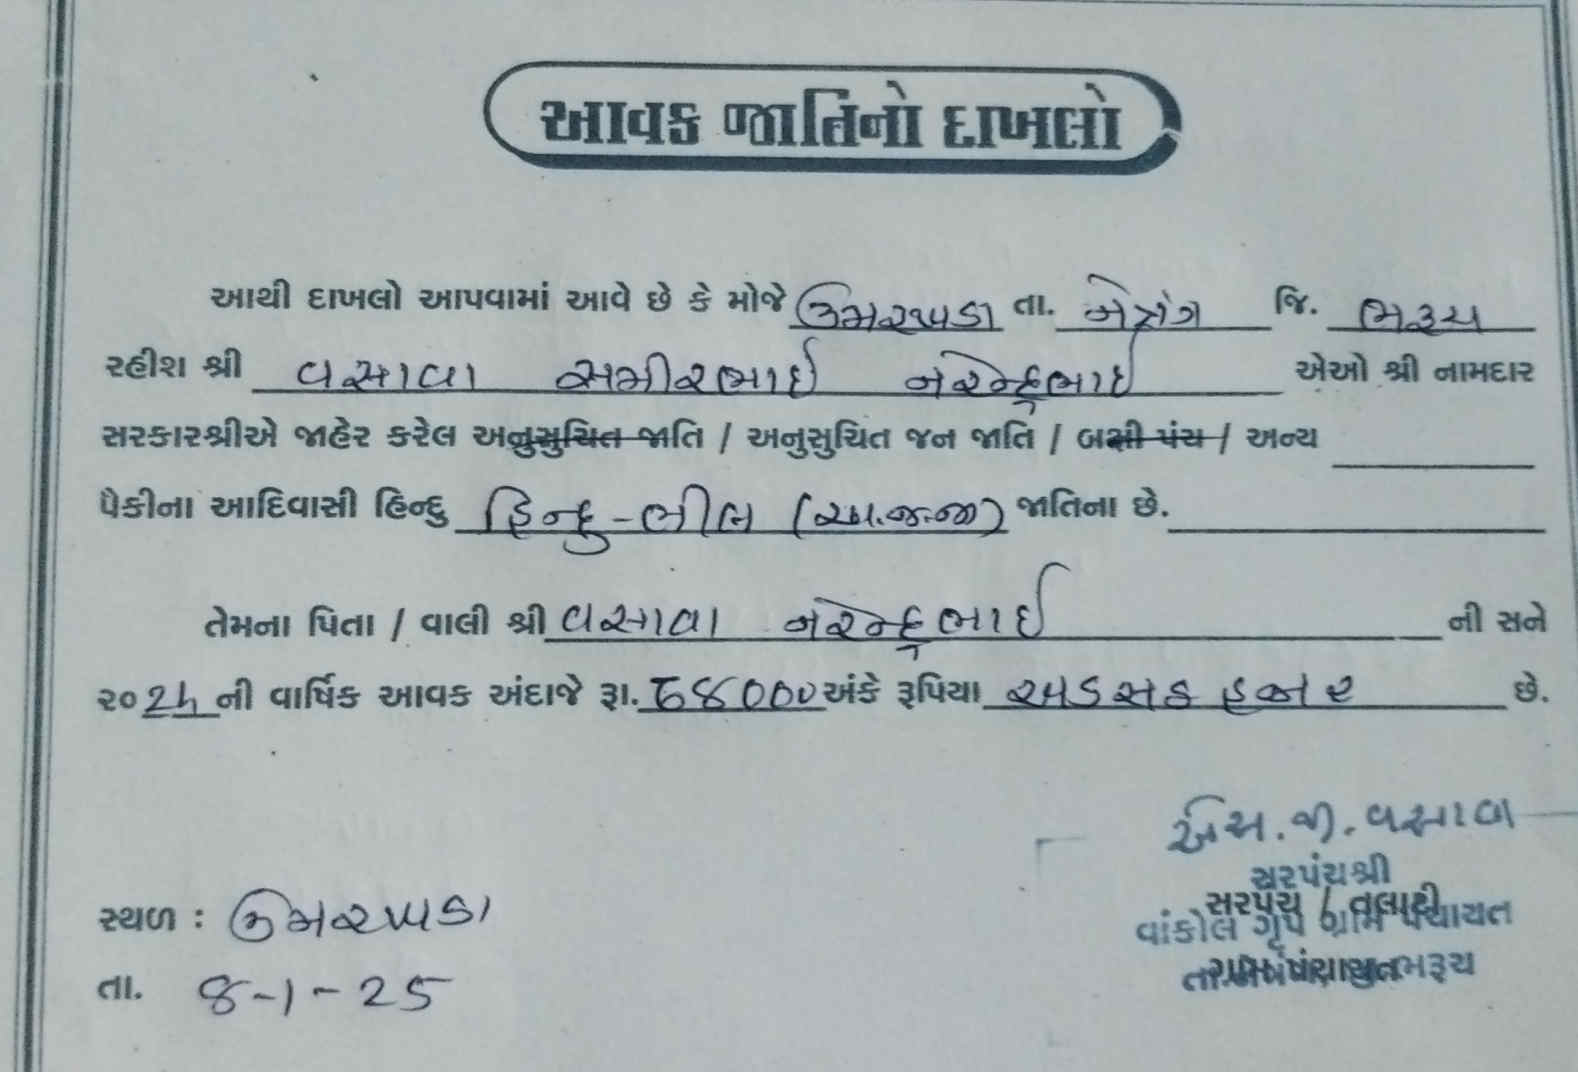 આવક જાતિનો દાખલો
આથી દાખલો આપવામાં આવે છે કે મોજે ઉમરખાડા તા. નેત્રંગ જિ. ભરૂચ
રહીશ શ્રી વસાવા સમીરભાઈ નરેન્દ્રભાઈ એઓ શ્રી નામદાર
સરકારશ્રીએ જાહેર કરેલ અનુસુચિત જાતિ / અનુસુચિત જન જાતિ / બક્ષી પંચ / અન્ય
પૈકીના આદિવાસી હિન્દુ હિન્દુ-ભીલ (અ.જ.જા) જાતિના છે.
તેમના પિતા / વાલી શ્રી વસાવા નરેન્દ્રભાઈ ની સને
૨૦૨૫ ની વાર્ષિક આવક અંદાજે રૂા. ૬૮૦૦૦ અંકે રૂપિયા અડસઠ હજાર છે.
એસ.જી.વસાવા
સરપંચશ્રી
સ્થળ : ઉમરખાડા
સરપંચ / તલાટી
વાંકોલ ગૃપ ગ્રામ પંચાયત
તા. 8-1-25
ગ્રામ પંચાયત
ભરૂચ